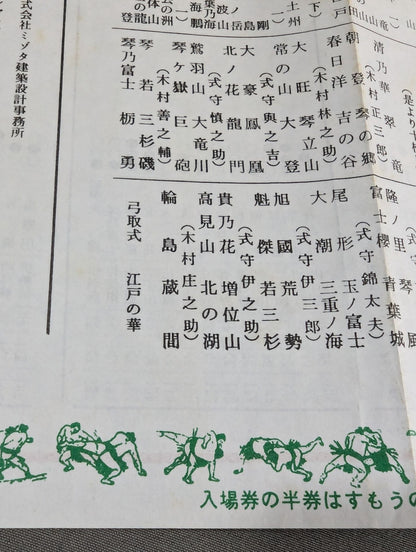 清乃華 翠竜
(木村正三郎)
朝登 琴の郷
春日洋 吉の谷
(木村林之助)
大旺 琴立山
常の山 大登
(式守與之吉)
大豪 鳳凰
北ノ花 龍門
(式守慎之助)
鷲羽山 大竜川
琴ヶ嶽 巨砲
(木村善之輔)
琴若 三杉磯
琴乃富士 栃勇
隆ノ里 琴風
富士櫻 青葉城
(式守錦太夫)
尾形 玉ノ富士
大潮 三重ノ海
(式守伊三郎)
旭國 荒勢
魁傑 若三杉
(式守伊之助)
貴乃花 増位山
高見山 北の湖
(木村庄之助)
輪島 蔵間
弓取式 江戸の華
式会社ミゾタ建築設計事務所
入場券の半券はすもうの